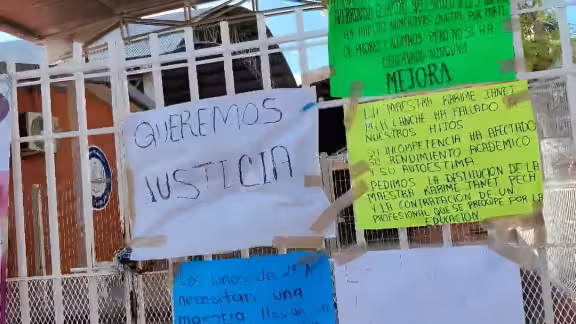 HA HABIDO NUMEROSAS QUEJAS POR PARTE
DE PADRES Y ALUMNOS PERO NO SE HA
OBSERVADO NINGUNA
MEJORA
QUEREMOS
JUSTICIA
LA MAESTRA KARIME JANET
PECH CANCHE HA FALLADO
NUESTROS HIJOS
SU INCOMPETENCIA HA AFECTADO
SU RENDIMIENTO ACADEMICO
Y SU AUTOESTIMA.
PEDIMOS LA DESTITUCION DE LA
MAESTRA KARIME JANET PECH
Y LA CONTRATACION DE UN
PROFESIONAL QUE SE PREOCUPE POR LA
EDUCACION.
Los niños de 2°
necesitan una
maestra llevan un